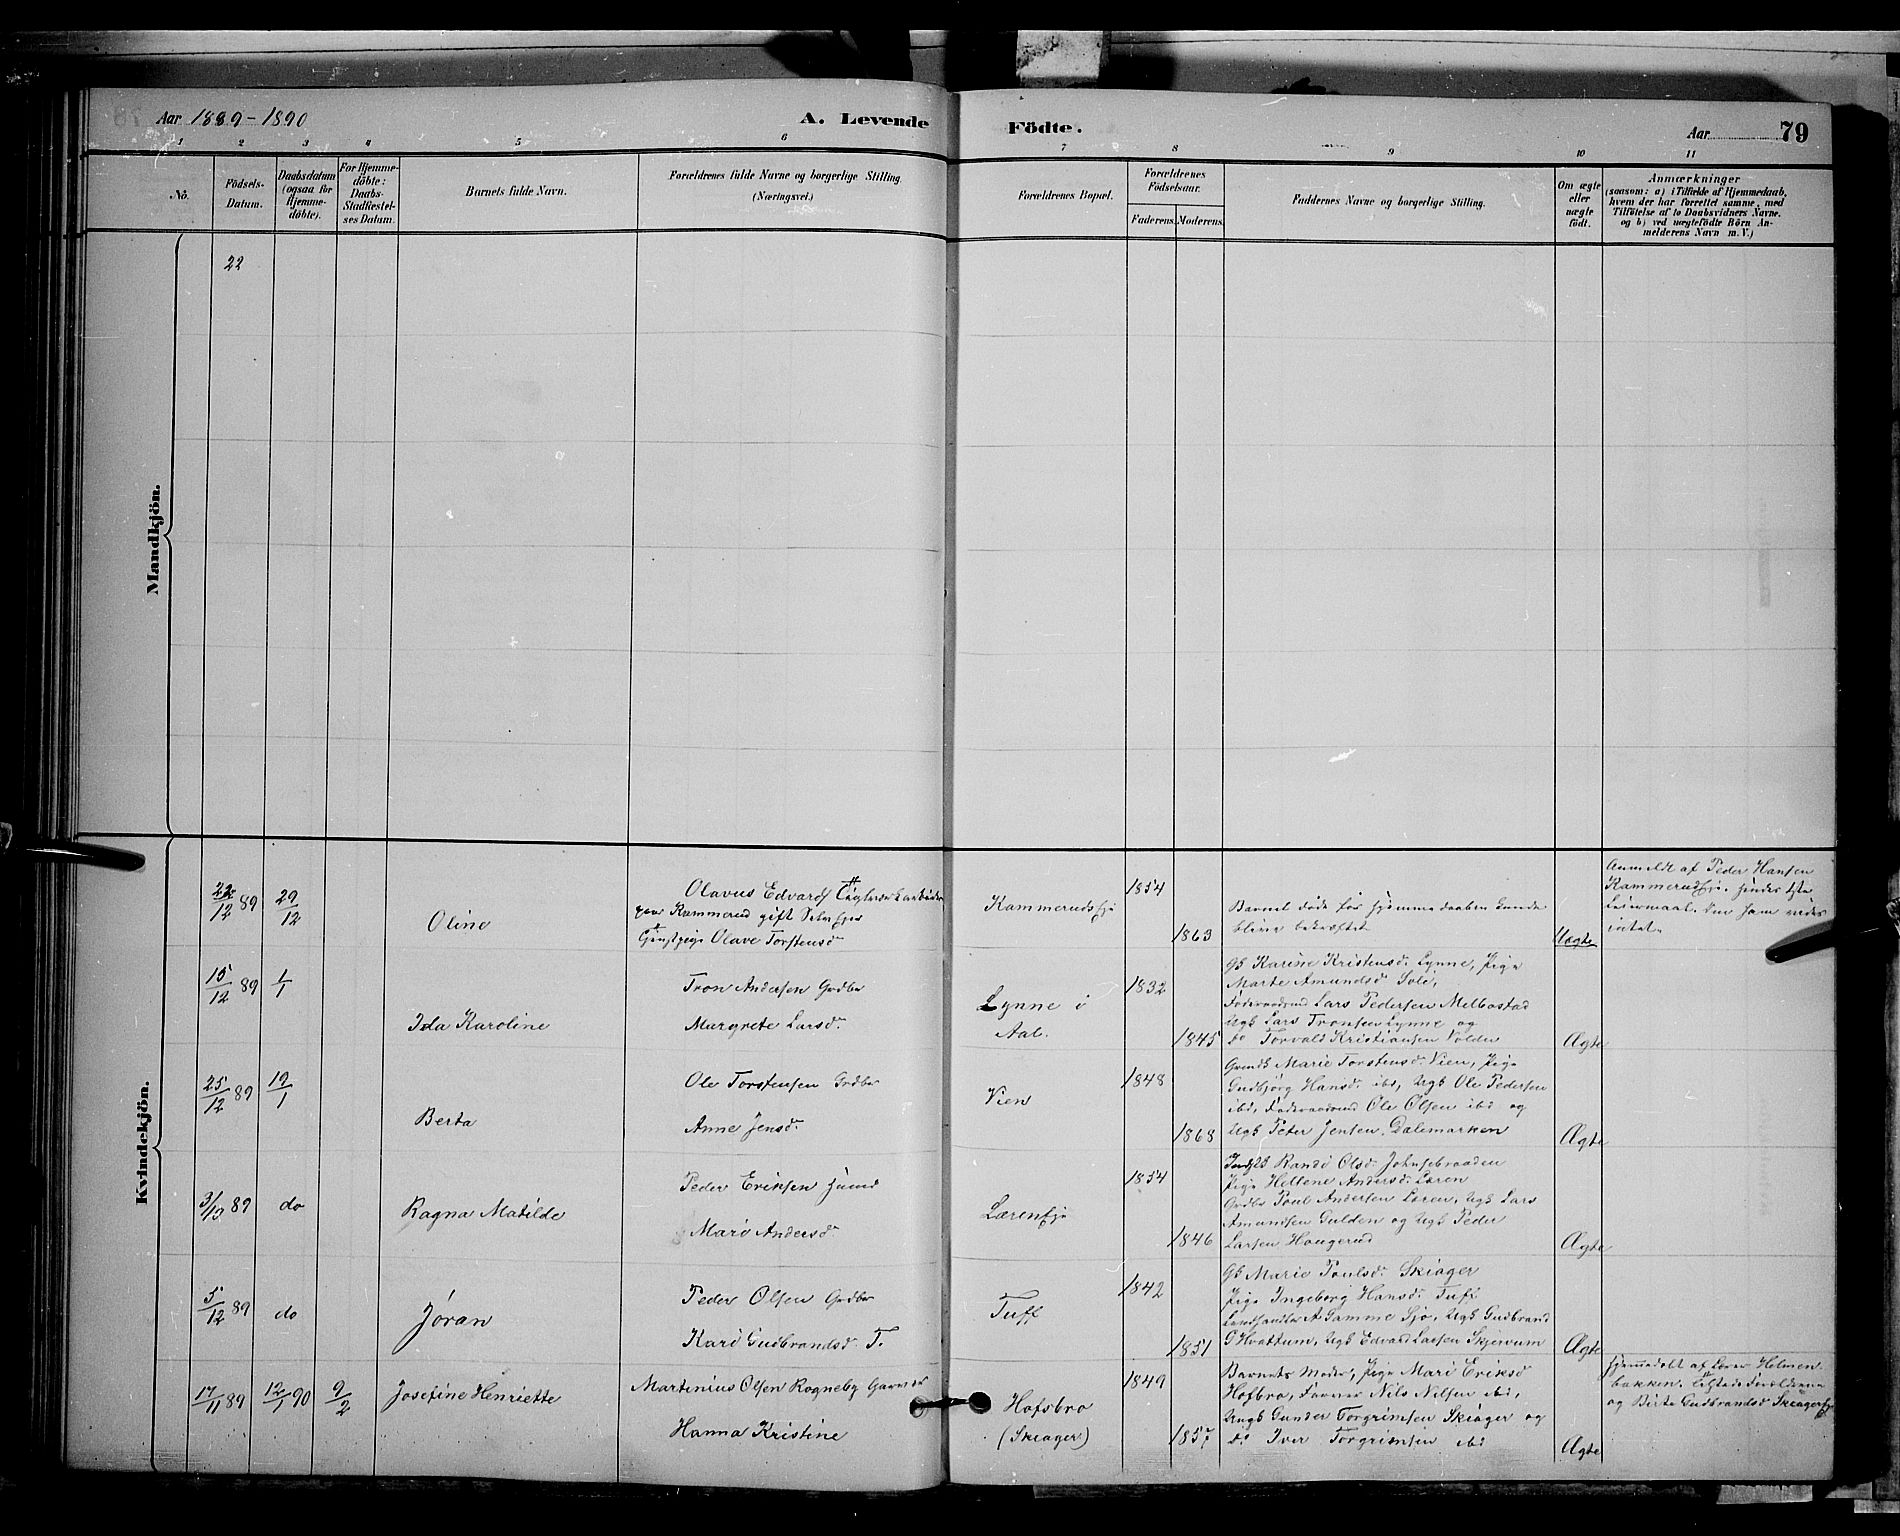 Aar 1889-1890
A. Levende
Födte.
Aar
79
1 2 3 4 5 6 7 8 9 10 11
No.
Födsels-
Datum.
Daabsdatum
(ogsaa for
Hjemme-
döbte).
For Hjemme-
döbte:
Daabs-
Stadfæstel-
ses Datum.
Barnets fulde Navn.
Forældrenes fulde Navne og borgerlige Stilling.
(Næringsvei.)
Forældrenes Bopæl.
Forældrenes
Födselsaar.
Faderens. Moderens.
Faddernes Navne og borgerlige Stilling.
Om ægte
eller
uægte
födt.
Anmærkninger
(saasom: a) i Tilfælde af Hjemmedaab,
hvem der har forrettet samme, med
Tilföielse af to Daabsvidners Navne.
og b) ved uægtefödte Börn An-
melderens Navn m. V.)
Mandkjön.
22
Kvindekjön.
22/12 89
29/12
Oline
Olavus Edvards
paa Kammerud gift
Olave Torstensd
Kammerudseje
1854
1863
Barnet døde før hjemmedaaben kunde
blive bekræftet
Uægte
Anmeldt af Peder Hansen
Kammerudseje. hendes 1ste
Leiermaal.
intet.
15/12 89
1/1
Ida Karoline
Tron Andersen Grdbr
Margrete Larsd.
Lynne i
Aal.
1832
1845
Gb Karine Kristensd. Lynne, Pige
Marte Amundsd Sole,
Føderaadsmd Lars Pedersen Melbostad
Ugk Lars Tronsen Lynne og
do Torvald Kristiansen Volden
Ægte
25/12 89
19/1
Berta
Ole Torstensen Grdbr
Anne Jensd.
Vien
1848
1868
Marie Torstensd. Vien, Pige
Gudbjørg Hansd. ibd, Ugk Ole Pedersen
ibd, Føderaadsmd Ole Olsen ibd og
Ugk Peter Jensen Dalemarken
Ægte
3/10 89
do
Ragna Matilde
Peder Eriksen Husmd
Mari Andersd.
Lørenseje
1854
1846
Randi Olsd. Johnsebraaden
Pige Hellene Andersd. Løren
Grdbr Poul Andersen Løren, Ugk Lars
Amundsen Gulden og Ugk Peder
Larsen Haugerud
Ægte
5/12 89
do
Jøran
Peder Olsen Grdbr
Kari Gudbrandsd. T.
Tuff
1842
1851
Gk Marie Poulsd. Skiager
Pige Ingeborg Hansd. Tuff
Landhandler A Samme Sjo, Ugk Gudbrand
G Hvattum, Ugk Edvard Larsen Skjervum
Ægte
17/11 89
12/1 90
9/2
Josefine Henriette
Martinius Olsen Rogneby Garver
Hanna Kristine
Hofsbro
(Skiager)
1849
1857
Barnets Moder, Pige Mari Eriksd
Hofbro, Farver Nils Nilsen ibd,
Ungk Gunder Torgrimsen Skiager og
do Iver Torgrimsen ibd
Ægte
hjemmedøbt af Lærer Holmen
bakken. Tilstede Forældrene
og Birte Gudbrandsd Skiagerseje